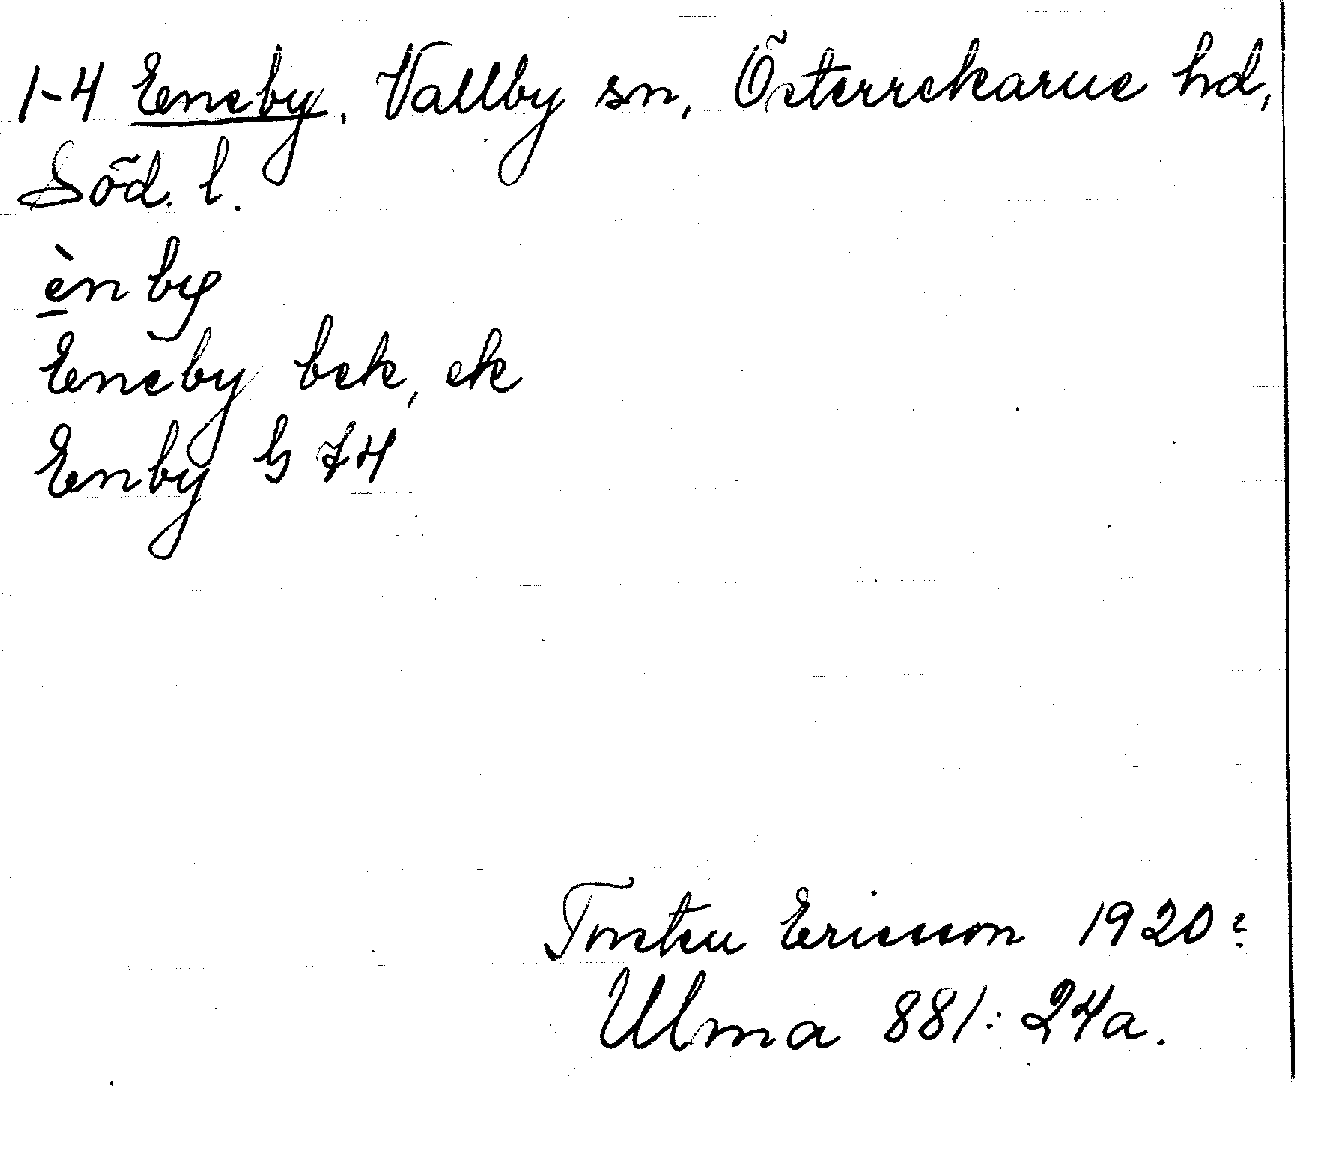 1-4 Eneby, Vallby sn, Österrekarne hd,
Söd. l.
ènby
Eneby bek, ek
Enby G 74
Torsten Ericsson 1920
Ulma 881: 24a.